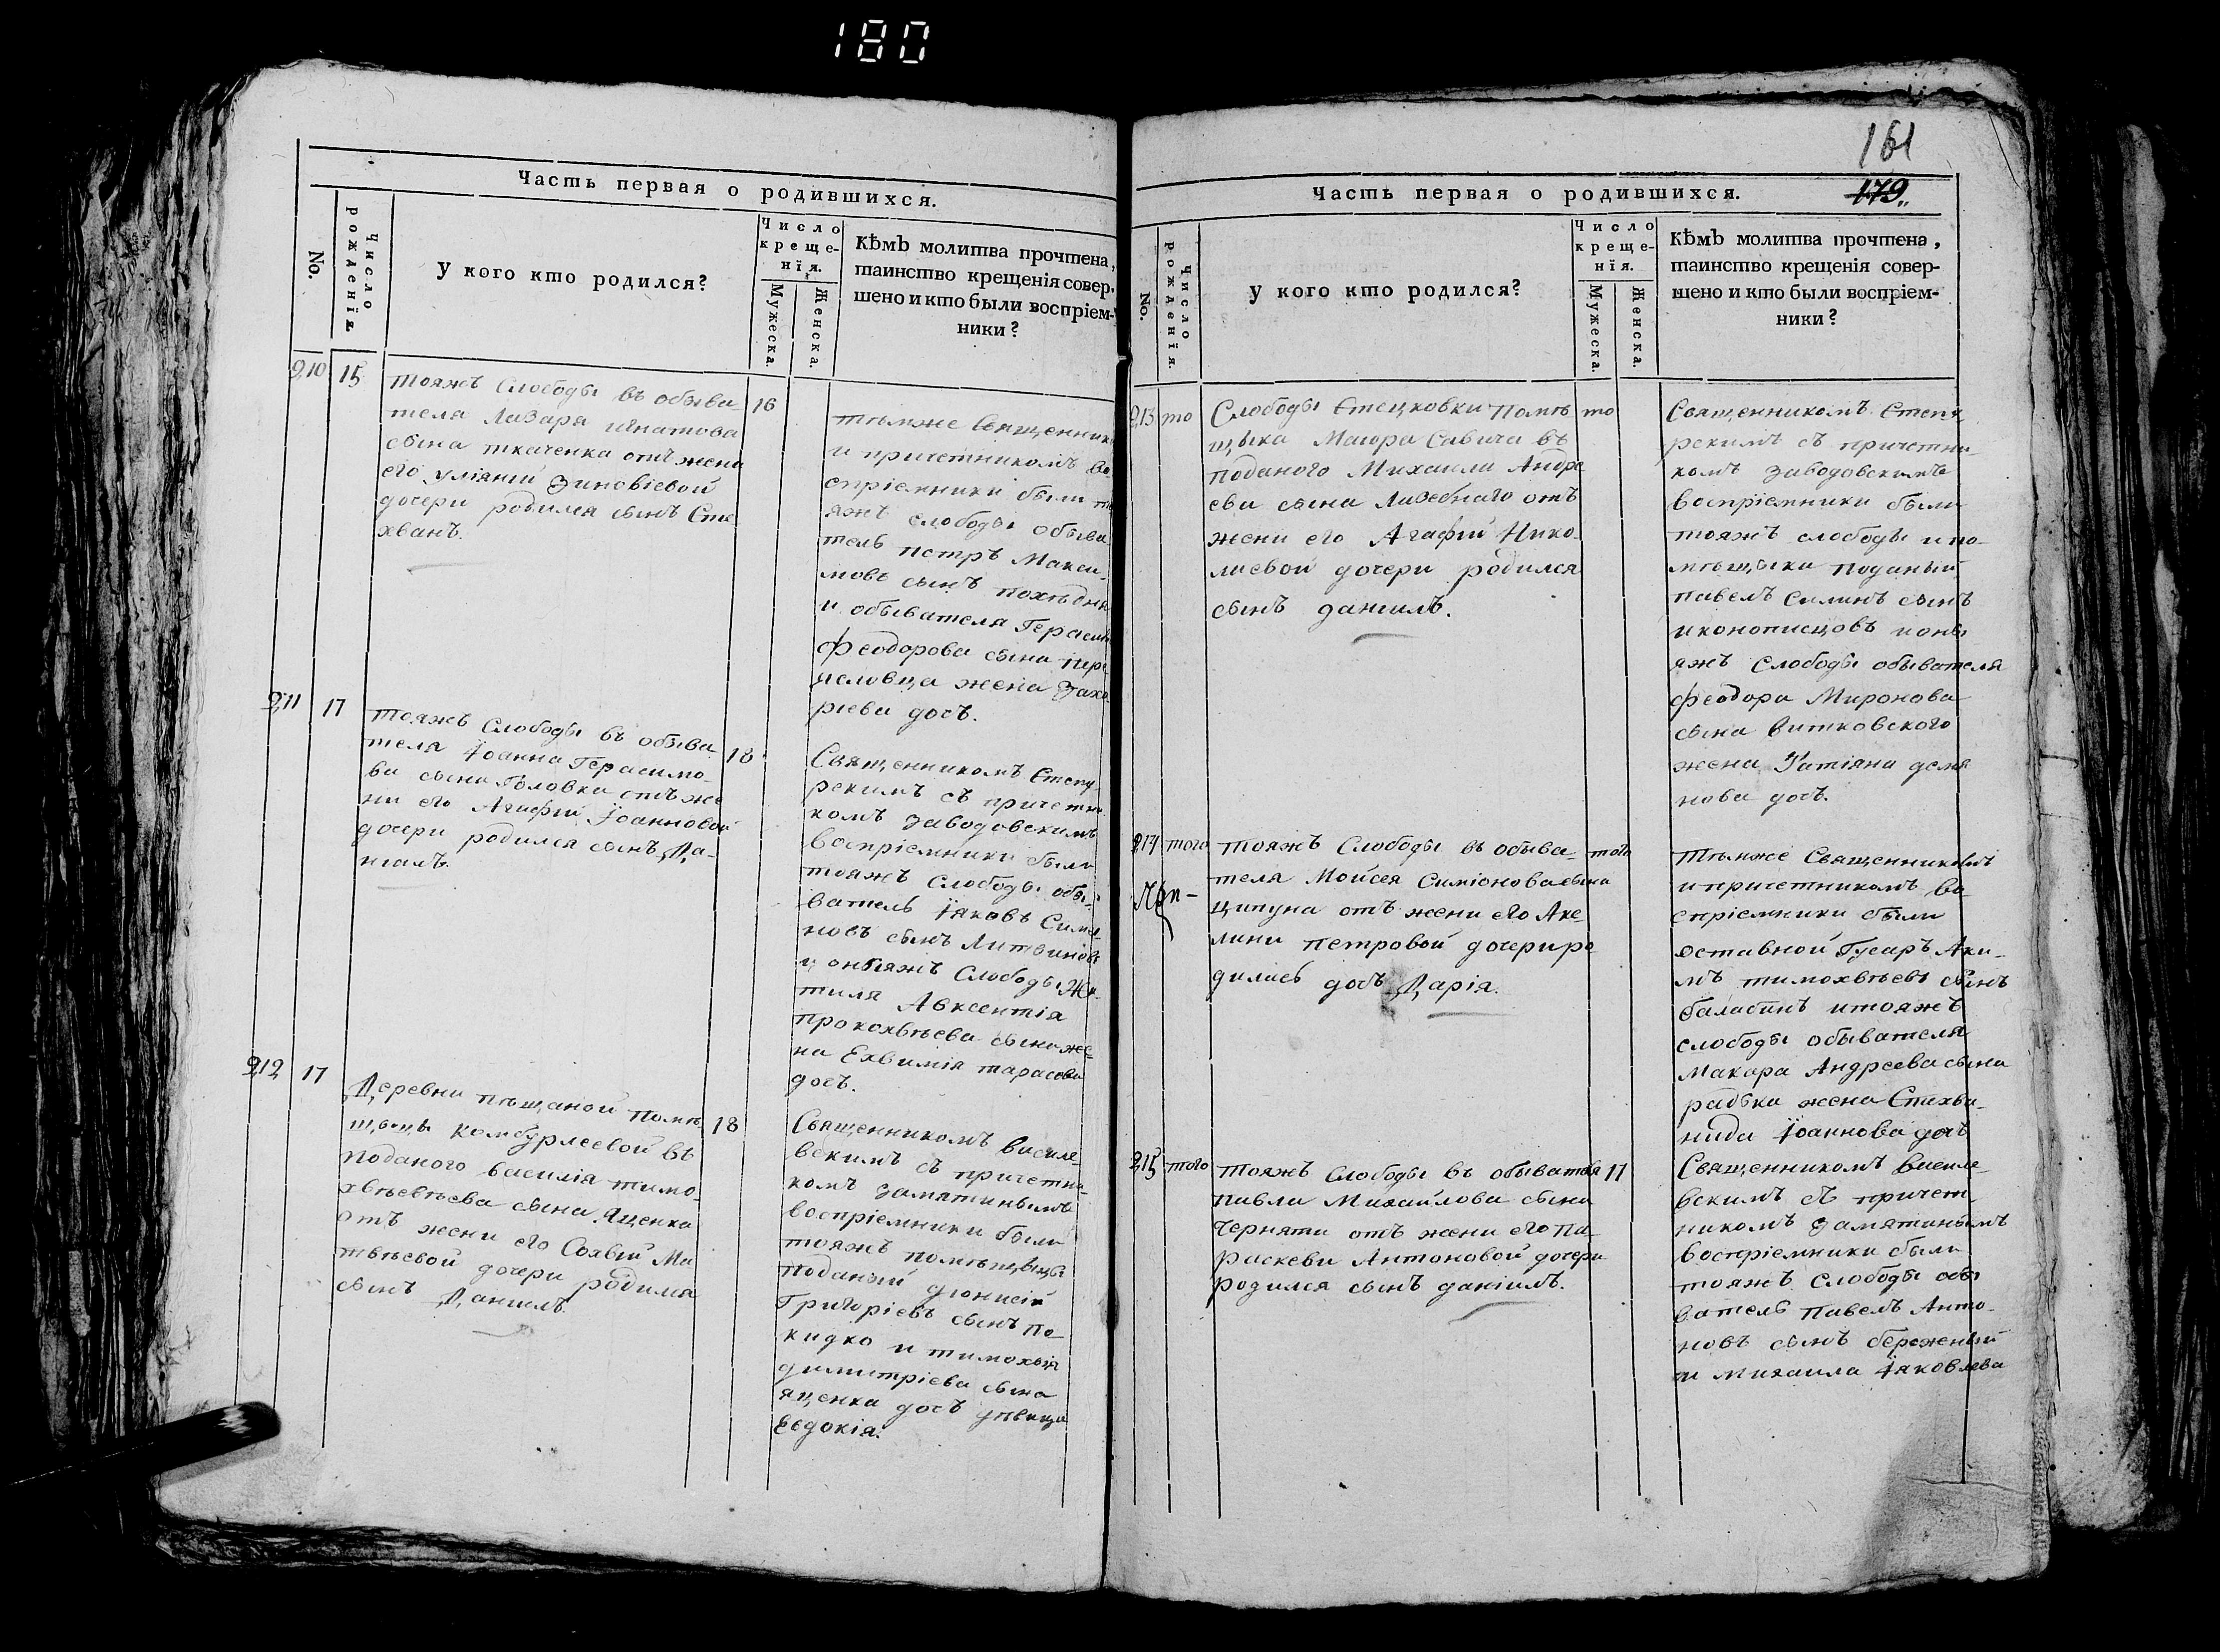 180
Часть первая о родившихся.
No.
Число рожденїя.
у кого кто родился?
Число
креще-
нїя.
Мужеска.
Женска.
Кѣмъ молитва прочтена,
таинство крещенія совер-
шено и кто были воспріем-
ники?
210 15 тояжъ Слободы въ обыва-
теля Лазаря игнатова
сына ткаченка отъ жени
его уліяніи Зиновіевой
дочери родился сынъ Сте
хванъ.
16
тѣмже Священник
и причетникомъ во
спріемники были т
яжъ слободы обыва
тель петръ Макси-
мовъ сынъ
и обывателя Герасим
феодорова сына пере
жена Заха
ріева дочъ.
211 17 тояжъ Слободы въ обыва
теля Їоанна Герасимо-
ва сына Головка отъ же
ни его Агафіи Їоанновой
дочери родился сынъ Да-
ніилъ.
18
Священникомъ Степу
рскимъ съ причетни
комъ заводовскимъ
воспріемники были
тояжъ Слободы обы-
ватель Їяковъ Симо
новъ сынъ Литвинов
и онбіяжъ Слободы Жи-
тиля Авксентія
прокохвѣева сына же-
на Ехвимія тарасова
дочъ.
212 17 Деревни пѣщаной помѣ
щицы Камбурлеевой въ
поданого василія тимо-
хвѣевѣева сына Яценка
отъ жени его Сохвіи Ма
твѣевой дочери родился
сынъ Даніилъ.
18
Священникомъ василе-
вскимъ съ причетни-
комъ замятинымъ
воспріемники были
тояжъ помѣщицы
поданый діонисій
Григоріевъ сынъ по-
кидко и тимохвія
димитріева сына
яценка дочъ дѣвица
Евдокія.
161
179
Часть первая о родившихся.
No.
Число рожденїя.
у кого кто родился?
Число
креще-
нїя.
Мужеска.
Женска.
Кѣмъ молитва прочтена,
таинство крещенія совер-
шено и кто были воспріем-
ники?
213 то Слободы Стецковки помѣ
щыка Маіора Савича въ
поданого Михаила Андре
ева сына Лазебнаго отъ
жени его Агафіи Нико-
лаевой дочери родился
сынъ даніилъ.
то
Священникомъ Степу
рскимъ съ причетни-
комъ заводовскимъ
воспріемники были
тояжъ слободы и по-
мѣщыка поданый
павелъ Силинъ сынъ
иконописцовъ и оны
яжъ Слободы обывателя
феодора Миронова
сына Витковского
жена Татіяна демя
нова дочъ.
214 того тояжъ Слободы въ обыва-
теля Мойсея Симіонова сына
Ципуна отъ жени его Аке-
лини петровой дочери ро
дилась дочъ Дарія.
того
тѣмже Священникомъ
и причетникомъ во
спріемники были
оставной Гусаръ Аки-
мъ тимохвѣевъ сынъ
балабинъ и тояжъ
слободы обывателя
Макара Андреева сына
рабька жена Стехва-
нида Їоаннова дочъ
215 того тояжъ Слободы въ обывателя
павла Михайлова сына
Черняти отъ жени его па-
раскеви Антоновой дочери
родился сынъ даніилъ.
17
Священникомъ Василе-
вскимъ съ причет-
никомъ Замятинымъ
воспріемники были
тояжъ слободы обы
ватель павелъ Анто-
новъ сынъ бережный
и михаила Їяковлева